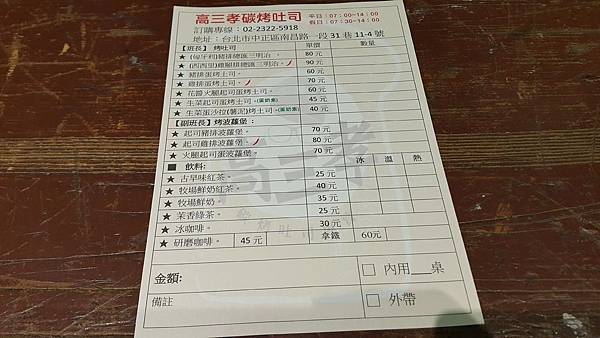 高三孝碳烤吐司 平日：07：00~14：00
假日：07：30~14：00
訂購專線：02-2322-5918
地址：台北市中正區南昌路一段 31 巷 11-4 號
【班長】 烤吐司 單價 數量
★ (匈牙利)豬排總匯三明治。 80 元
★ (西西里)雞腿排總匯三明治。 90 元
★ 豬排蛋烤土司。 60 元
★ 雞排蛋烤土司。 70 元
★ 花醬火腿起司蛋烤土司。 60 元
★ 生菜起司蛋烤土司。(蛋奶素) 45 元
★ 生菜蛋沙拉(薯泥)烤土司。(蛋奶素) 40 元
【副班長】烤波蘿堡：
★ 起司豬排波蘿堡。 70 元
★ 起司雞排波蘿堡。 80 元
★ 火腿起司蛋波蘿堡。 70 元
■ 飲料: 冰 溫 熱
★ 古早味紅茶。 25 元
★ 牧場鮮奶紅茶。 40 元
★ 牧場鮮奶。 35 元
★ 茉香綠茶。 25 元
★ 冰咖啡。 30 元
★ 研磨咖啡。 45 元 拿鐵 60元
高三孝
金額:
□ 內用___桌
備註
□ 外帶